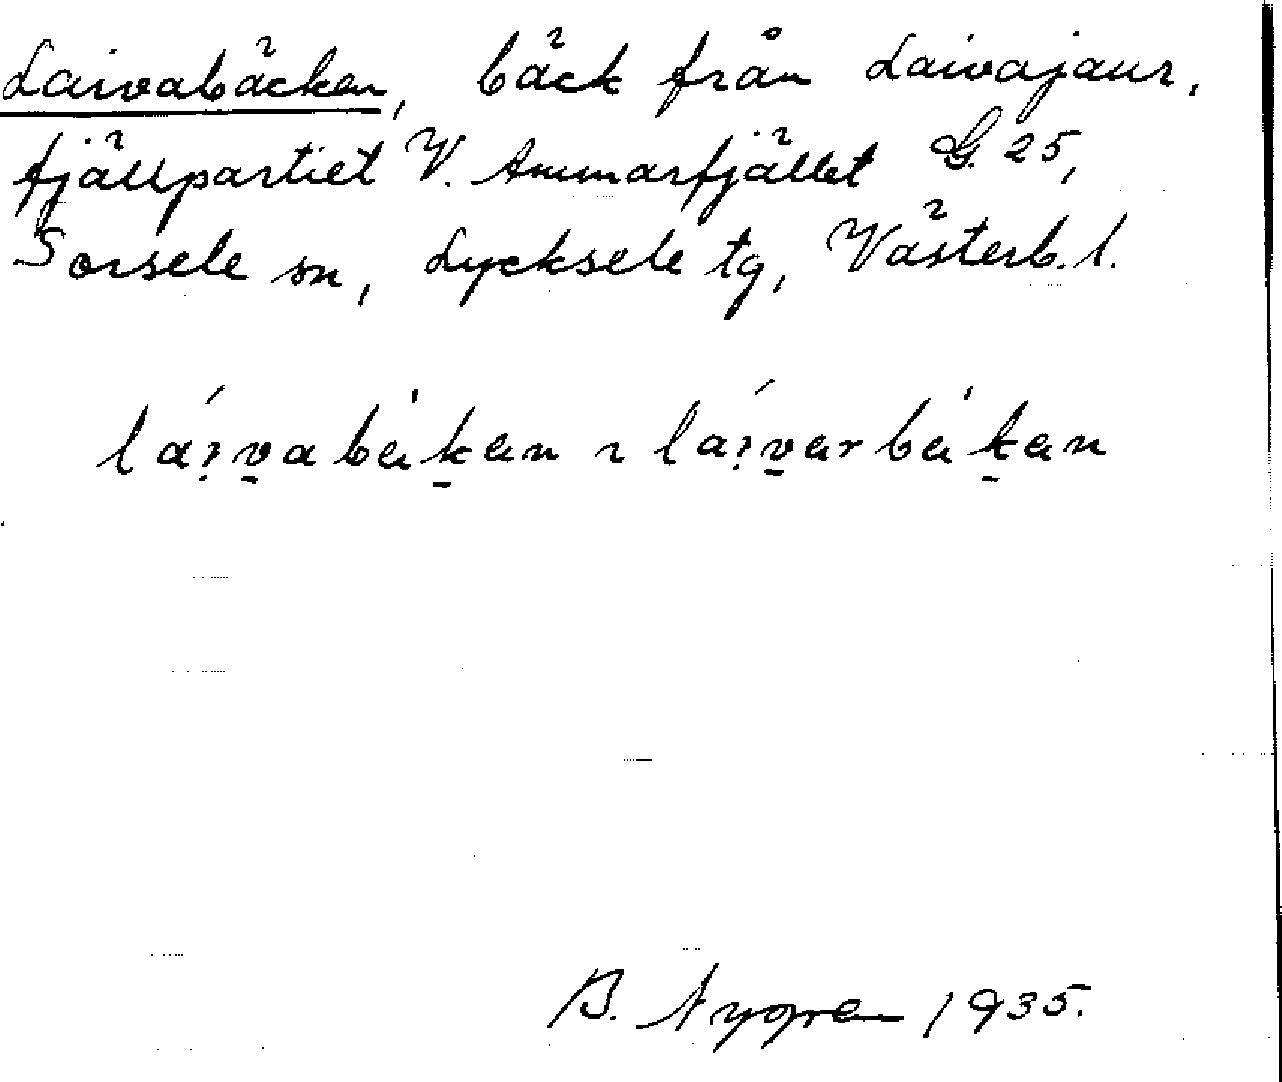 Laivabäcken, bäck från Laivajaur,
fjällpartiet V. Ammarfjället G. 25,
Sorsele sn, Lycksele tg, Västerb. l.
B. Nygren 1935.